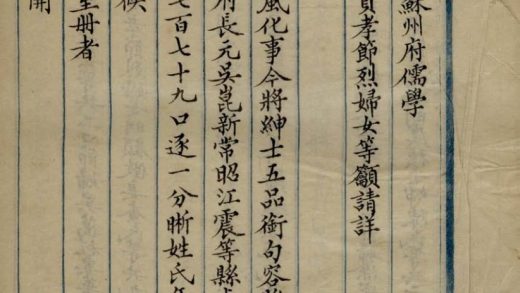 蘇州府儒學
貞孝節烈婦女等籲請詳
風化事今將紳士五品銜句容
府長元吳崑新常昭江震等縣
七百七十九口逐一分晰姓氏年
候
呈册者
開